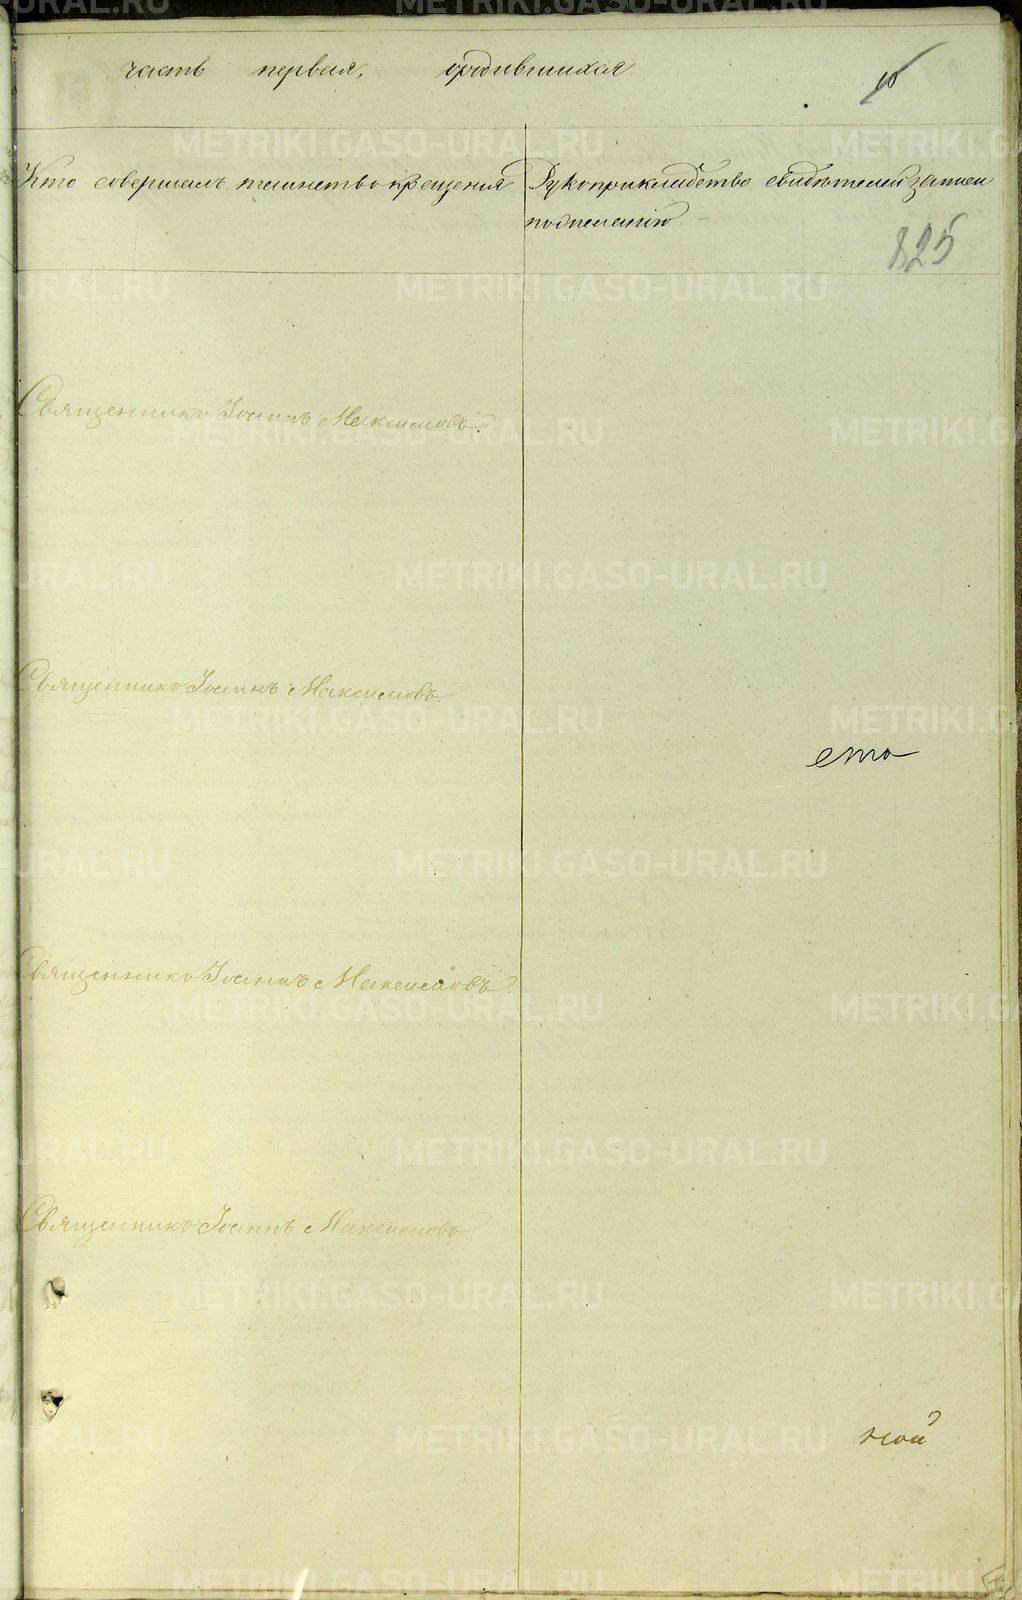 часть первая, о родившихся
Кто совершалъ таинство крещенія
Рукоприкладство свидѣтелей записи
по желанію.
825
Священникъ Іоаннъ Максимовъ.
Священникъ Іоаннъ Максимовъ.
ета
Священникъ Іоаннъ Максимовъ.
Священникъ Іоаннъ Максимовъ
ной
METRIKI.GASO-URAL.RU